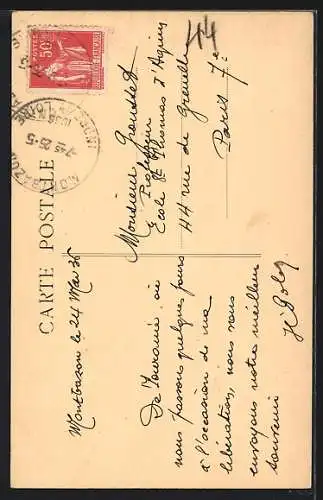 CARTE POSTALE
44
POSTES
50c
REPUBLIQUE FRANÇAISE
MONTBAZON
7-45 25-5
1936
INDRE-ET-LOIRE
Montbazon le 24 Mai 36
De Touraine, où
nous passons quelques jours
à l'occasion de ma
libération, nous vous
envoyons notre meilleur
souvenir
Monsieur
Professeur
Ecole St Thomas d'Aquin
44 rue de Grenelle
Paris 7e